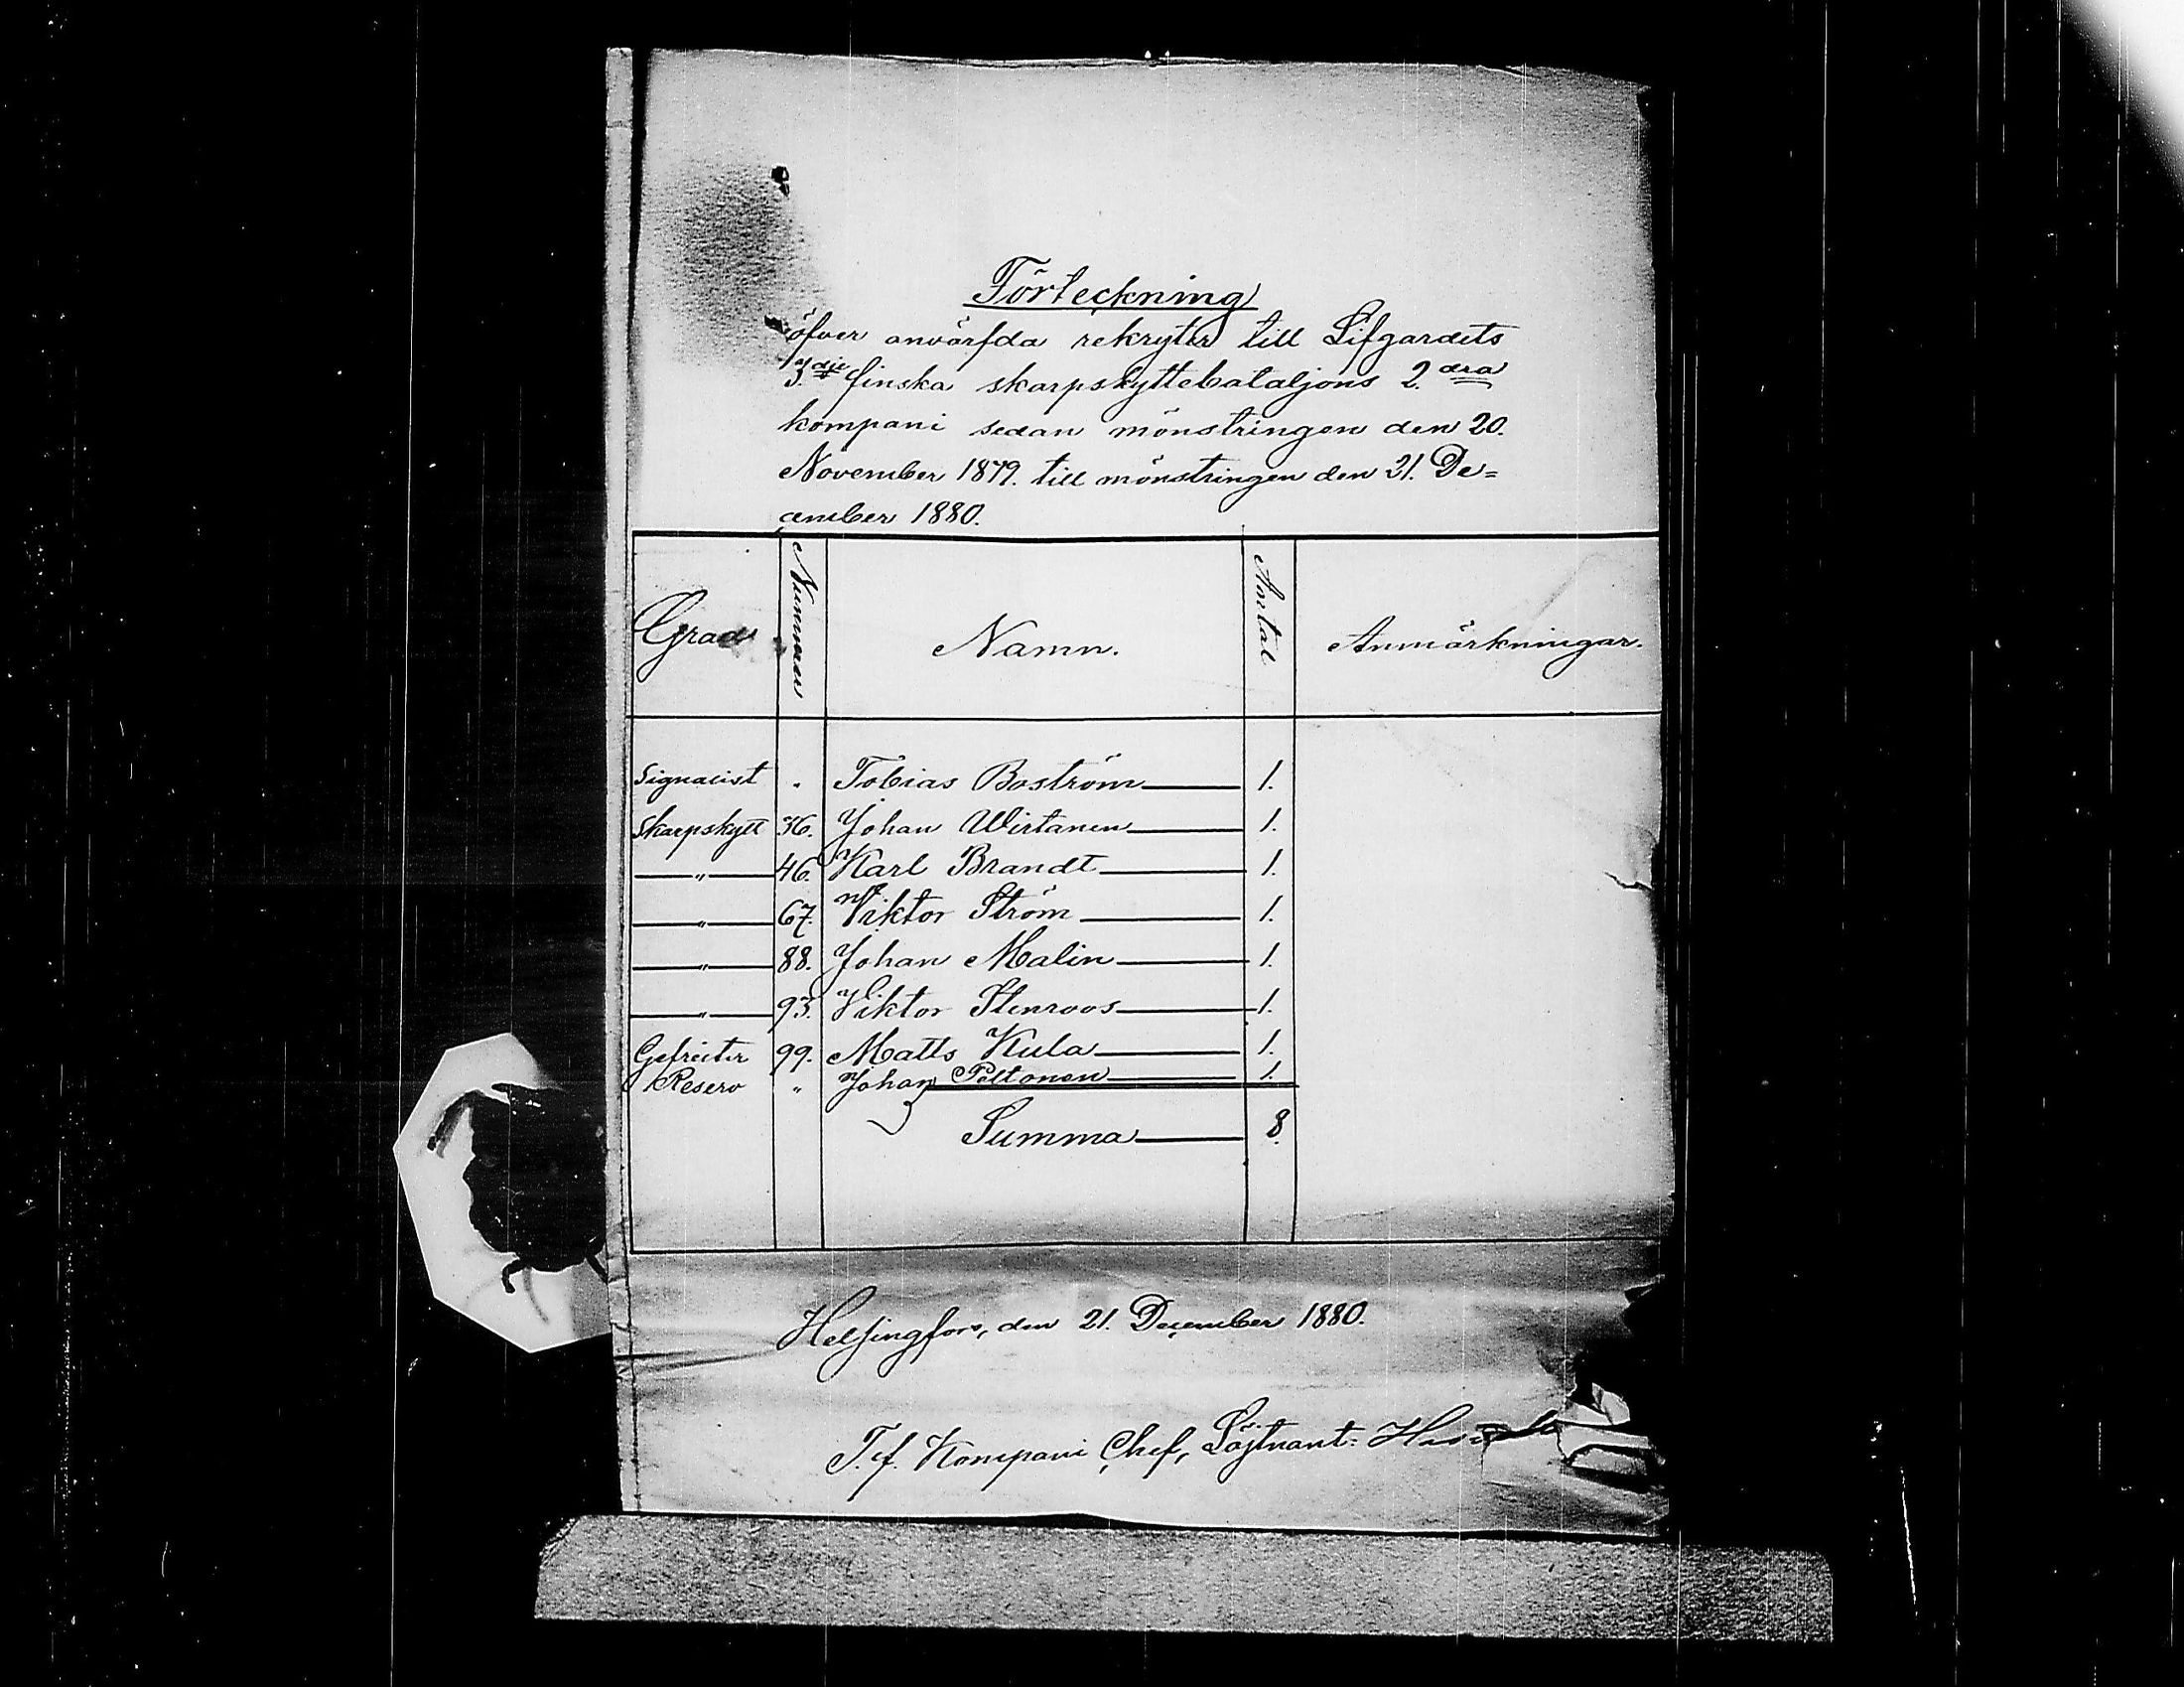 Förteckning
öfver anvärfda rekryter till Lifgardets
3.dje finska skarpskyttebataljons 2.dra
kompani sedan mönstringen den 20.
November 1879. till mönstringen den 21. De=
cember 1880.
Grad Nummer Namn. Antal Anmärkningar.
Signalist " Tobias Boström 1.
Skarpskytt 36. Johan Wirtanen 1.
" 46. Karl Brandt 1.
" 67. Viktor Ström 1.
" 88. Johan Malin 1.
" 93. Viktor Stenroos 1.
Gefreiter 99. Matts Kula 1.
Reserv " Johan Peltonen 1.
Summa 8.
Helsingfors, den 21. December 1880.
T.f. Kompani Chef, Löjtnant: